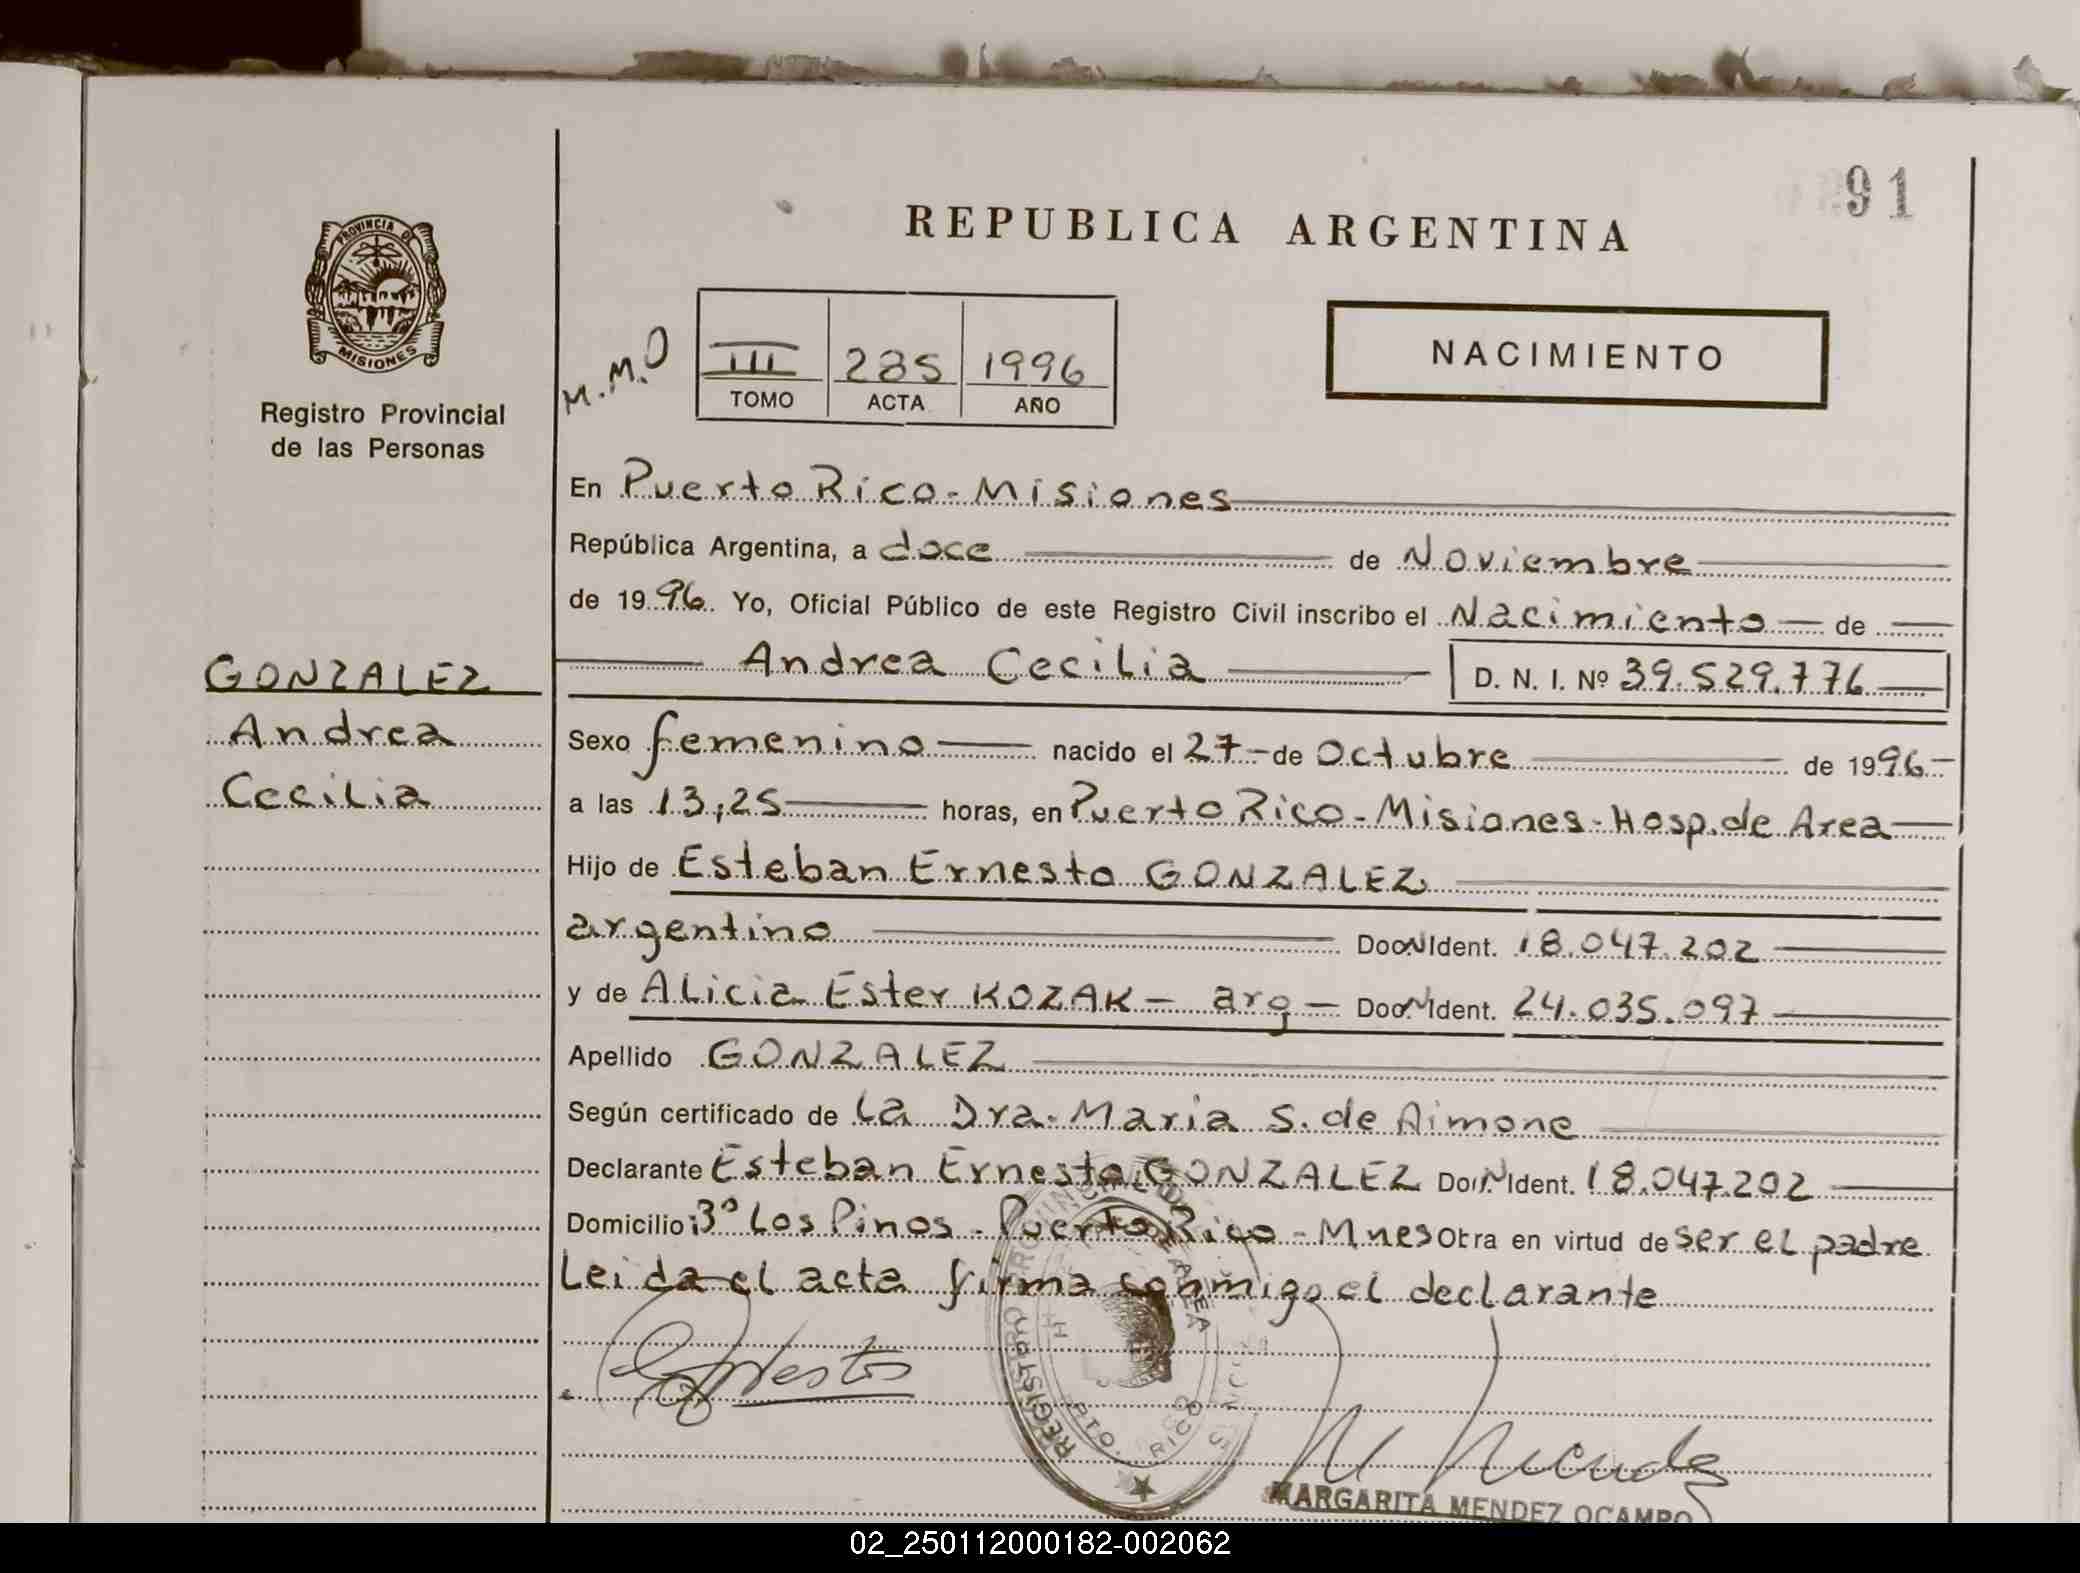 91
REPUBLICA ARGENTINA
PROVINCIA DE
MISIONES
Registro Provincial
de las Personas
M.M.O
III 285 1996
TOMO ACTA AÑO
NACIMIENTO
En Puerto Rico - Misiones
República Argentina, a doce de Noviembre
de 1996. Yo, Oficial Público de este Registro Civil inscribo el Nacimiento de
Andrea Cecilia D. N. I. Nº 39.529.776
GONZALEZ
Andrea
Cecilia
Sexo femenino nacido el 27 - de Octubre de 1996 -
a las 13,25 horas, en Puerto Rico - Misiones - Hosp. de Area
Hijo de Esteban Ernesto GONZALEZ
argentino Doc N Ident. 18.047.202
y de Alicia Ester KOZAK - arg - Doc N Ident. 24.035.097
Apellido GONZALEZ
Según certificado de La Dra. Maria S. de Aimone
Declarante Esteban Ernesto GONZALEZ Doc N Ident. 18.047.202
Domicilio Bº Los Pinos - Puerto Rico - Mnes Obra en virtud de ser el padre
Leida el acta firma conmigo el declarante
Ernesto
REGISTRO PROVINCIAL
PTO. RICO
MARGARITA MENDEZ OCAMPO
02_250112000182-002062